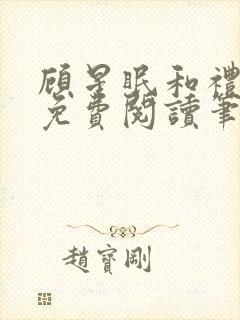 顾星眠和禮
免費閱讀筆
趙寶剛